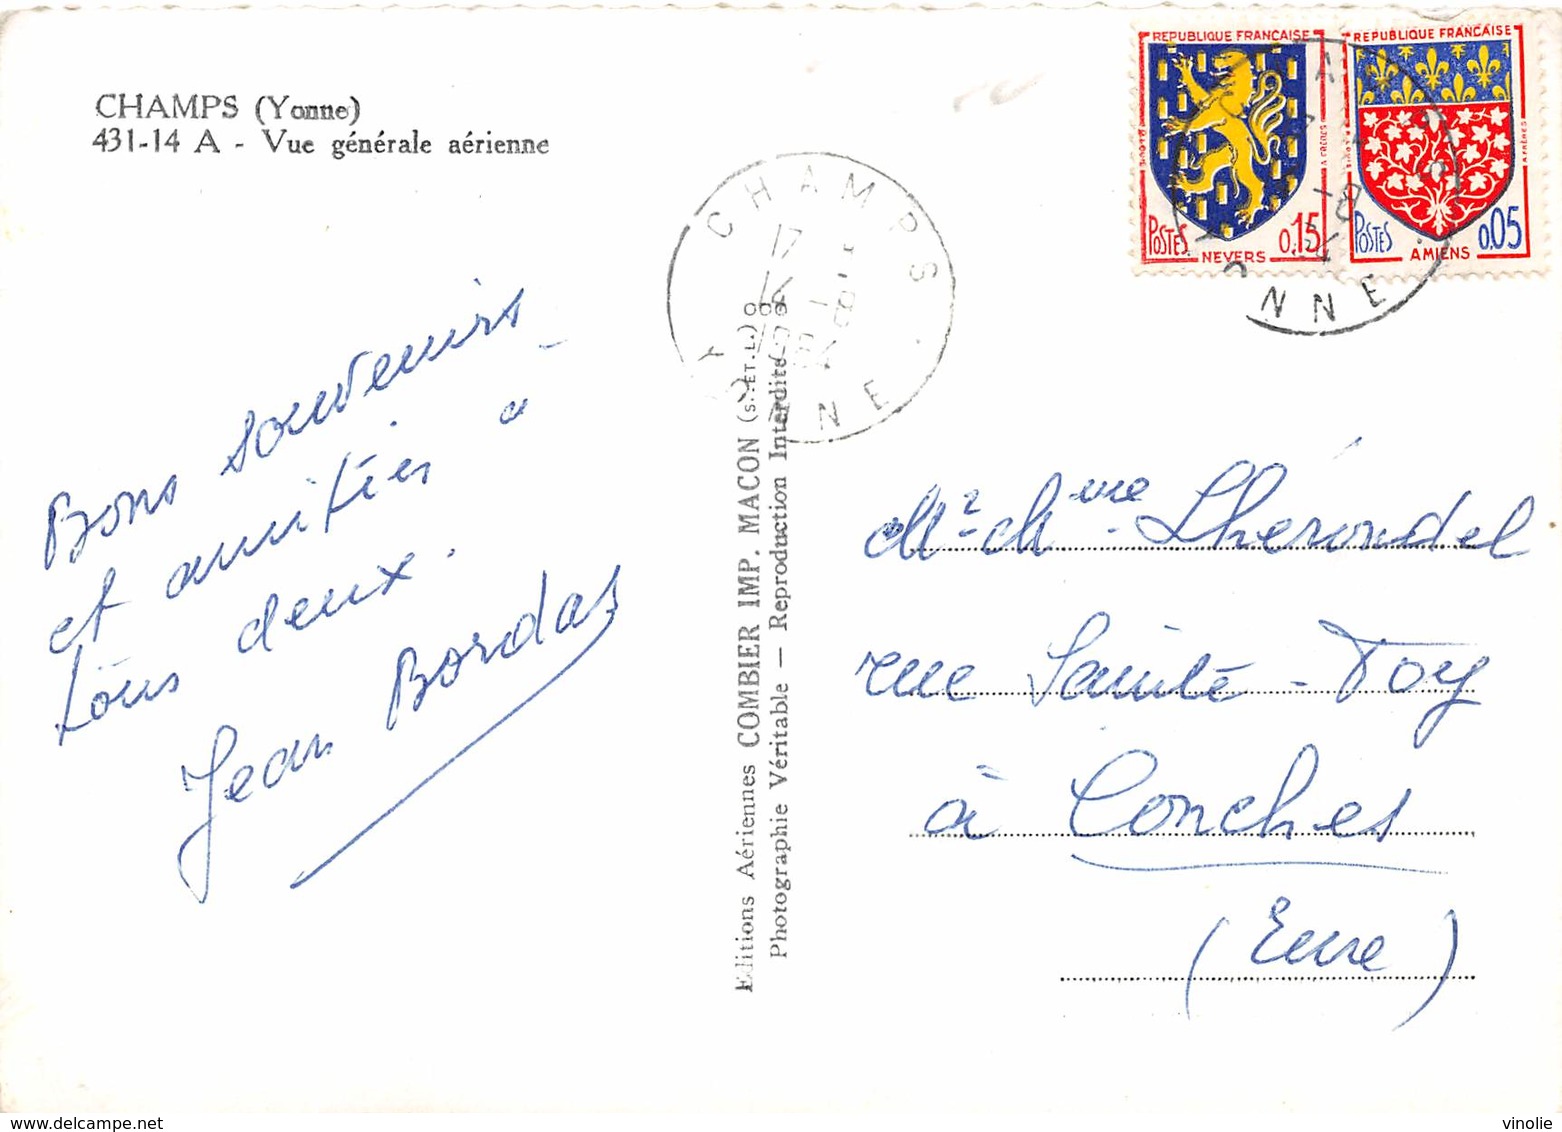 CHAMPS (Yonne)
431-14 A - Vue générale aérienne
REPUBLIQUE FRANÇAISE
POSTES
0,15
NEVERS
REPUBLIQUE FRANÇAISE
POSTES
0,05
AMIENS
CHAMPS
17 H
1964
YONNE
YONNE
Bons souvenirs
et amitiés à
tous deux.
Jean Bordas
Editions Aériennes COMBIER IMP. MACON (S.-ET-L.)
Photographie Véritable — Reproduction Interdite
Mr. Mme Lherondel
rue Sainte-Foy
à Conches
(Eure)
www.delcampe.net
vinolie